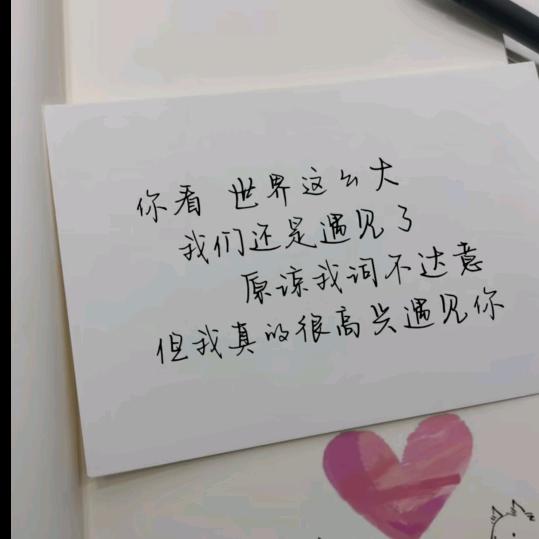 你看 世界这么大
我们还是遇见了
原谅我词不达意
但我真的很高兴遇见你